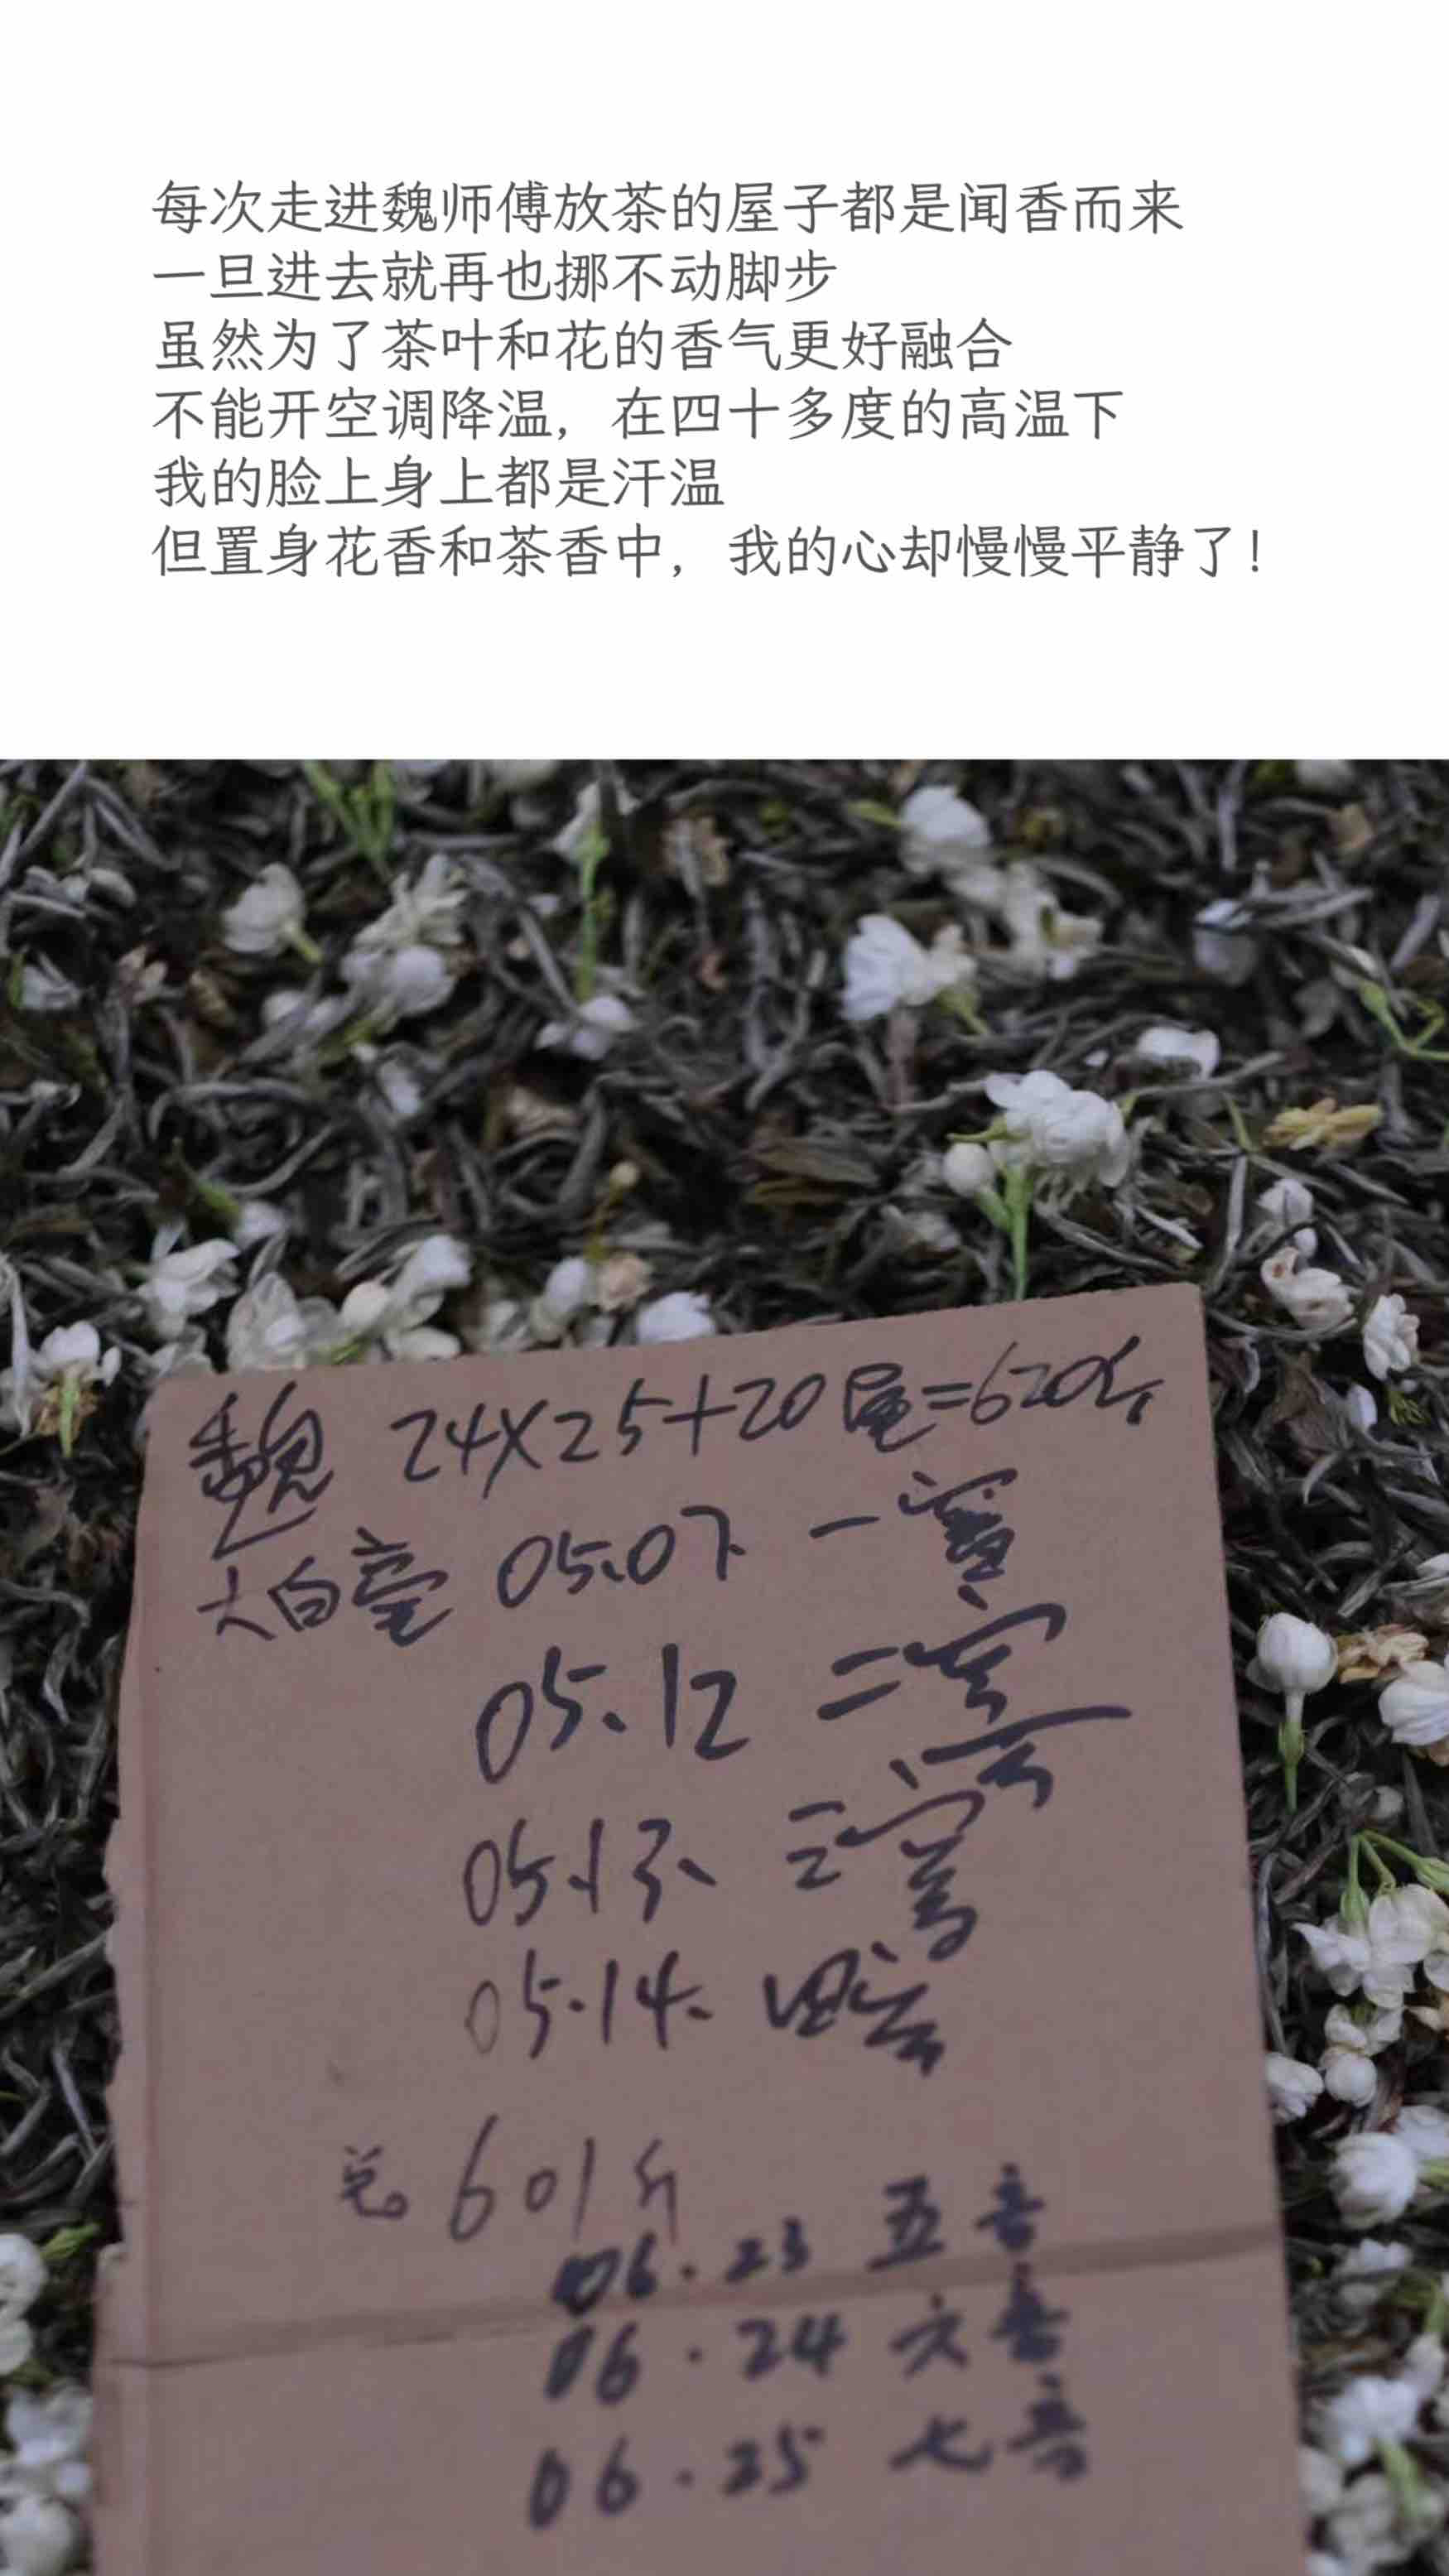 每次走进魏师傅放茶的屋子都是闻香而来
一旦进去就再也挪不动脚步
虽然为了茶叶和花的香气更好融合
不能开空调降温，在四十多度的高温下
我的脸上身上都是汗温
但置身花香和茶香中，我的心却慢慢平静了！
魏 24×25+20尾=620斤
大白毫 05.07. 一窨
05.12 二窨
05.13. 三窨
05.14. 四窨
总 601斤
06.23 五音
06.24 六音
06.25 七音